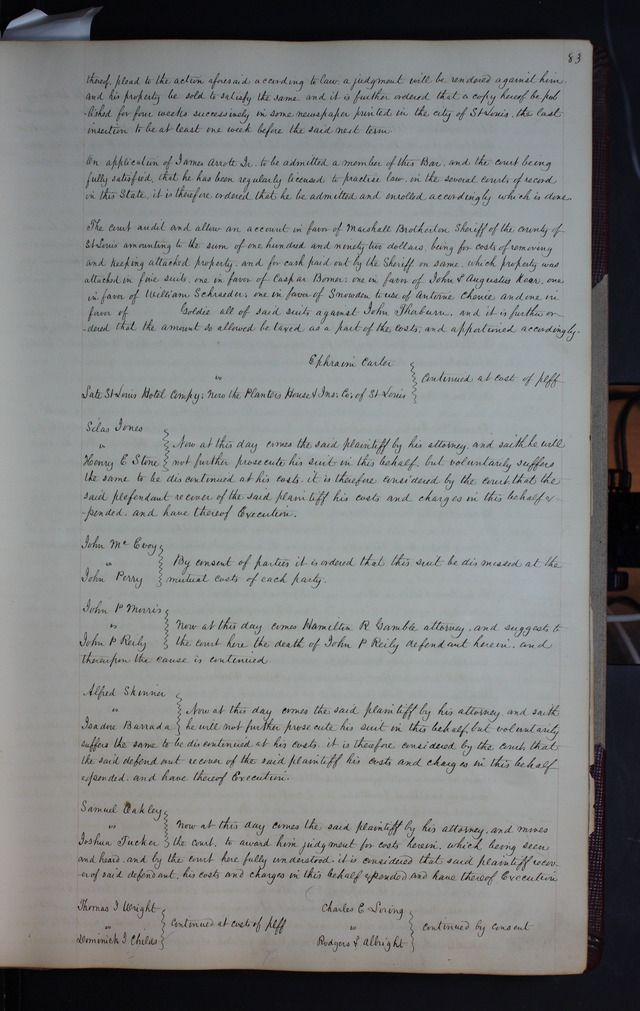 83
thereof, plead to the action aforesaid according to law a judgment will be rendered against him
and his property be sold to satisfy the same and it is further ordered that a copy hereof be pub
lished for four weeks successively in some newspaper printed in the city of St Louis, the last
insertion to be at least one week before the said next term.
On application of James Arrott Jr. to be admitted a member of this Bar, and the court being
fully satisfied, that he has been regularly licensed to practise law, in the several courts of record
in this State, it is therefore ordered that he be admitted and enrolled accordingly which is done.
The court audit and allow an account in favor of Marshall Brotherton Sheriff of the county of
St Louis amounting to the sum of one hundred and ninety two dollars, being for costs of removing
and keeping attached property, and for cash paid out by the Sheriff on same, which property was
attached in five suits, one in favor of Caspar Bomer, one in favor of John & Augustus Kear, one
in favor of William Schraeder, one in favor of Snowden to use of Antoine Chenie and one in
favor of Goldie all of said suits against John Thoburn, and it is further or-
-dered that the amount so allowed be taxed as a part of the costs, and apportioned accordingly.
Ephraim Carter
vs
Late St Louis Hotel Compy; now the Planters House & Ins: Co: of St Louis
Continued at cost of plff
Silas Jones
vs
Henry E Stone
Now at this day comes the said plaintiff by his attorney, and saith he will
not further prosecute his suit in this behalf, but voluntarily suffers
the same to be discontinued at his costs, it is therefore considered by the court that the
said plefendant recover of the said plaintiff his costs and charges in this behalf ex-
-pended, and have thereof Execution.
John Mc Evoy
vs
John Perry
By consent of parties it is ordered that this suit be dismissed at the
mutual costs of each party.
John P Morris
vs
John P Reily
Now at this day comes Hamilton R Gamble attorney, and suggests to
the court here the death of John P Reily defendant herein, and
thereupon the cause is continued
Alfred Skinner
vs
Isadore Barrada
Now at this day comes the said plaintiff by his attorney and saith
he will not further prosecute his suit in this behalf, but voluntarily
suffers the same to be discontinued at his costs, it is therefore considered by the court, that
the said defendant recover of the said plaintiff his costs and charges in this behalf
expended, and have thereof Execution.
Samuel Oakley
vs
Joshua Tucker
Now at this day comes the said plaintiff by his attorney, and moves
the court, to award him judgment for costs herein, which being seen
and heard, and by the court here fully understood, it is considered that said plaintiff recov-
er of said defendant, his costs and charges in this behalf expended and have thereof Execution
Thomas J Wright
vs
Dominick J Childs
continued at costs of plff
Charles E Loring
vs
Rodgers & Albright
continued by consent